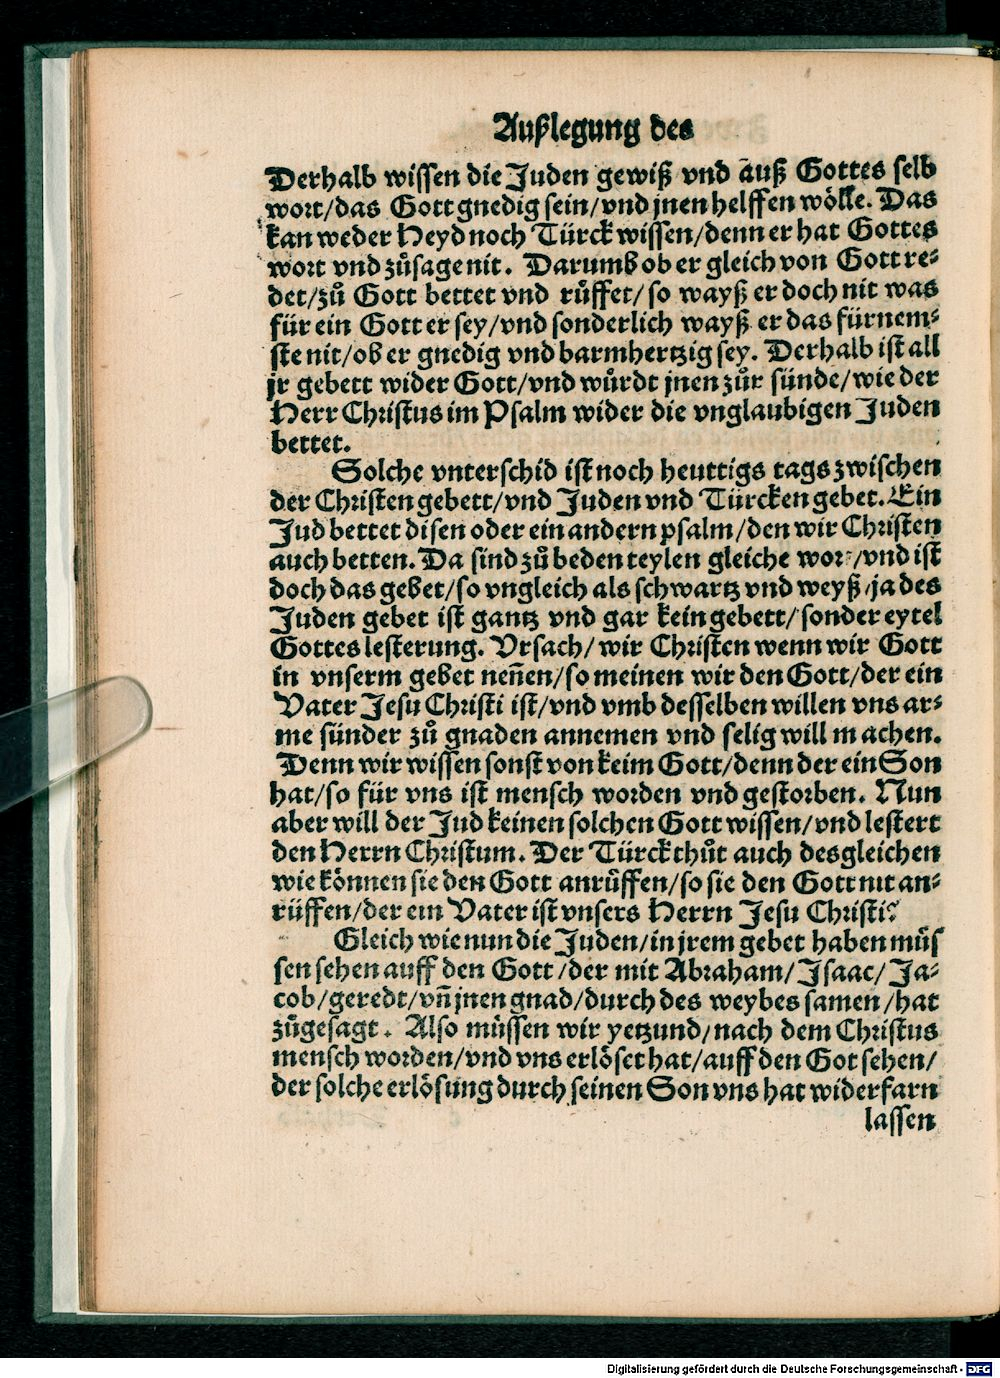 Außlegung des
Derhalb wissen die Juden gewiß vnd auß Gottes selb
wort/das Gott gnedig sein/vnd jnen helffen wölle. Das
kan weder Heyd noch Türck wissen/denn er hat Gottes
wort vnd zůsage nit. Darumb ob er gleich von Gott re⸗
det/zů Gott bettet vnd růffet/so wayß er doch nit was
für ein Gott er sey/vnd sonderlich wayß er das fürnem⸗
ste nit/ob er gnedig vnd barmhertzig sey. Derhalb ist all
jr gebett wider Gott/vnd würdt jnen zůr sünde/wie der
Herr Christus im Psalm wider die vnglaubigen Juden
bettet.
Solche vnterschid ist noch heuttigs tags zwischen
der Christen gebett/vnd Juden vnd Türcken gebet. Ein
Jud bettet disen oder ein andern psalm/den wir Christen
auch betten. Da sind zů beden teylen gleiche wor/vnd ist
doch das gebet/so vngleich als schwartz vnd weyß/ja des
Juden gebet ist gantz vnd gar kein gebett/sonder eytel
Gottes lesterung. Vrsach/wir Christen wenn wir Gott
in vnserm gebet neñen/so meinen wir den Gott/der ein
Vater Jesu Christi ist/vnd vmb desselben willen vns ar⸗
me sünder zů gnaden annemen vnd selig will machen.
Denn wir wissen sonst von keim Gott/denn der ein Son
hat/so für vns ist mensch worden vnd gestorben. Nun
aber will der Jud keinen solchen Gott wissen/vnd lestert
den Herrn Christum. Der Türck thůt auch desgleichen
wie können sie den Gott anrůffen/so sie den Gott nit an⸗
rüffen/der ein Vater ist vnsers Herrn Jesu Christi?
Gleich wie nun die Juden/in jrem gebet haben müs
sen sehen auff den Gott/der mit Abraham/Isaac/Ja⸗
cob/geredt/vñ jnen gnad/durch des weybes samen/hat
zůgesagt. Also müssen wir yetzund/nach dem Christus
mensch worden/vnd vns erlöset hat/auff den Got sehen/
der solche erlösung durch seinen Son vns hat widerfarn
lassen
Digitalisierung gefördert durch die Deutsche Forschungsgemeinschaft - DFG